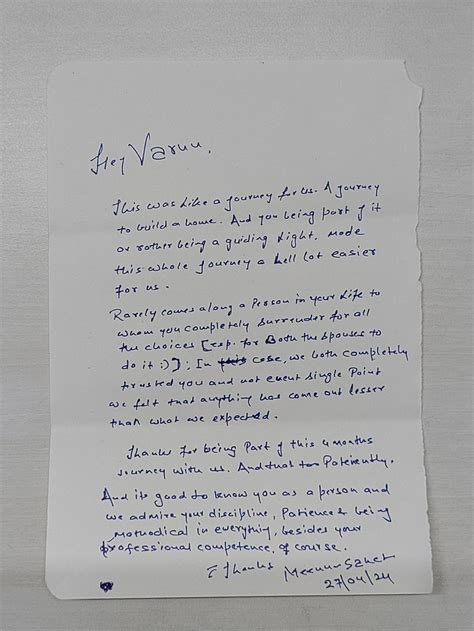 Hey Varun.
This was like a journey for us. A journey
to build a home. And you being part of it
or rather being a guiding light, made
this whole journey a hell lot easier
for us.
Rarely comes along a Person in your life to
whom you completely surrender for all
the choices [esp. for Both the spouses to
do it :)]: In this case, we both completely
trusted you and not event single Point
we felt that anything has come out lesser
than what we expected.
Thanks for being Part of this 4 months
journey with us. And that too Patiently.
And its good to know you as a person and
we admire your discipline, Patience & being
Methodical in everything, besides your
professional competence, of course.
Thanks
27/04/24